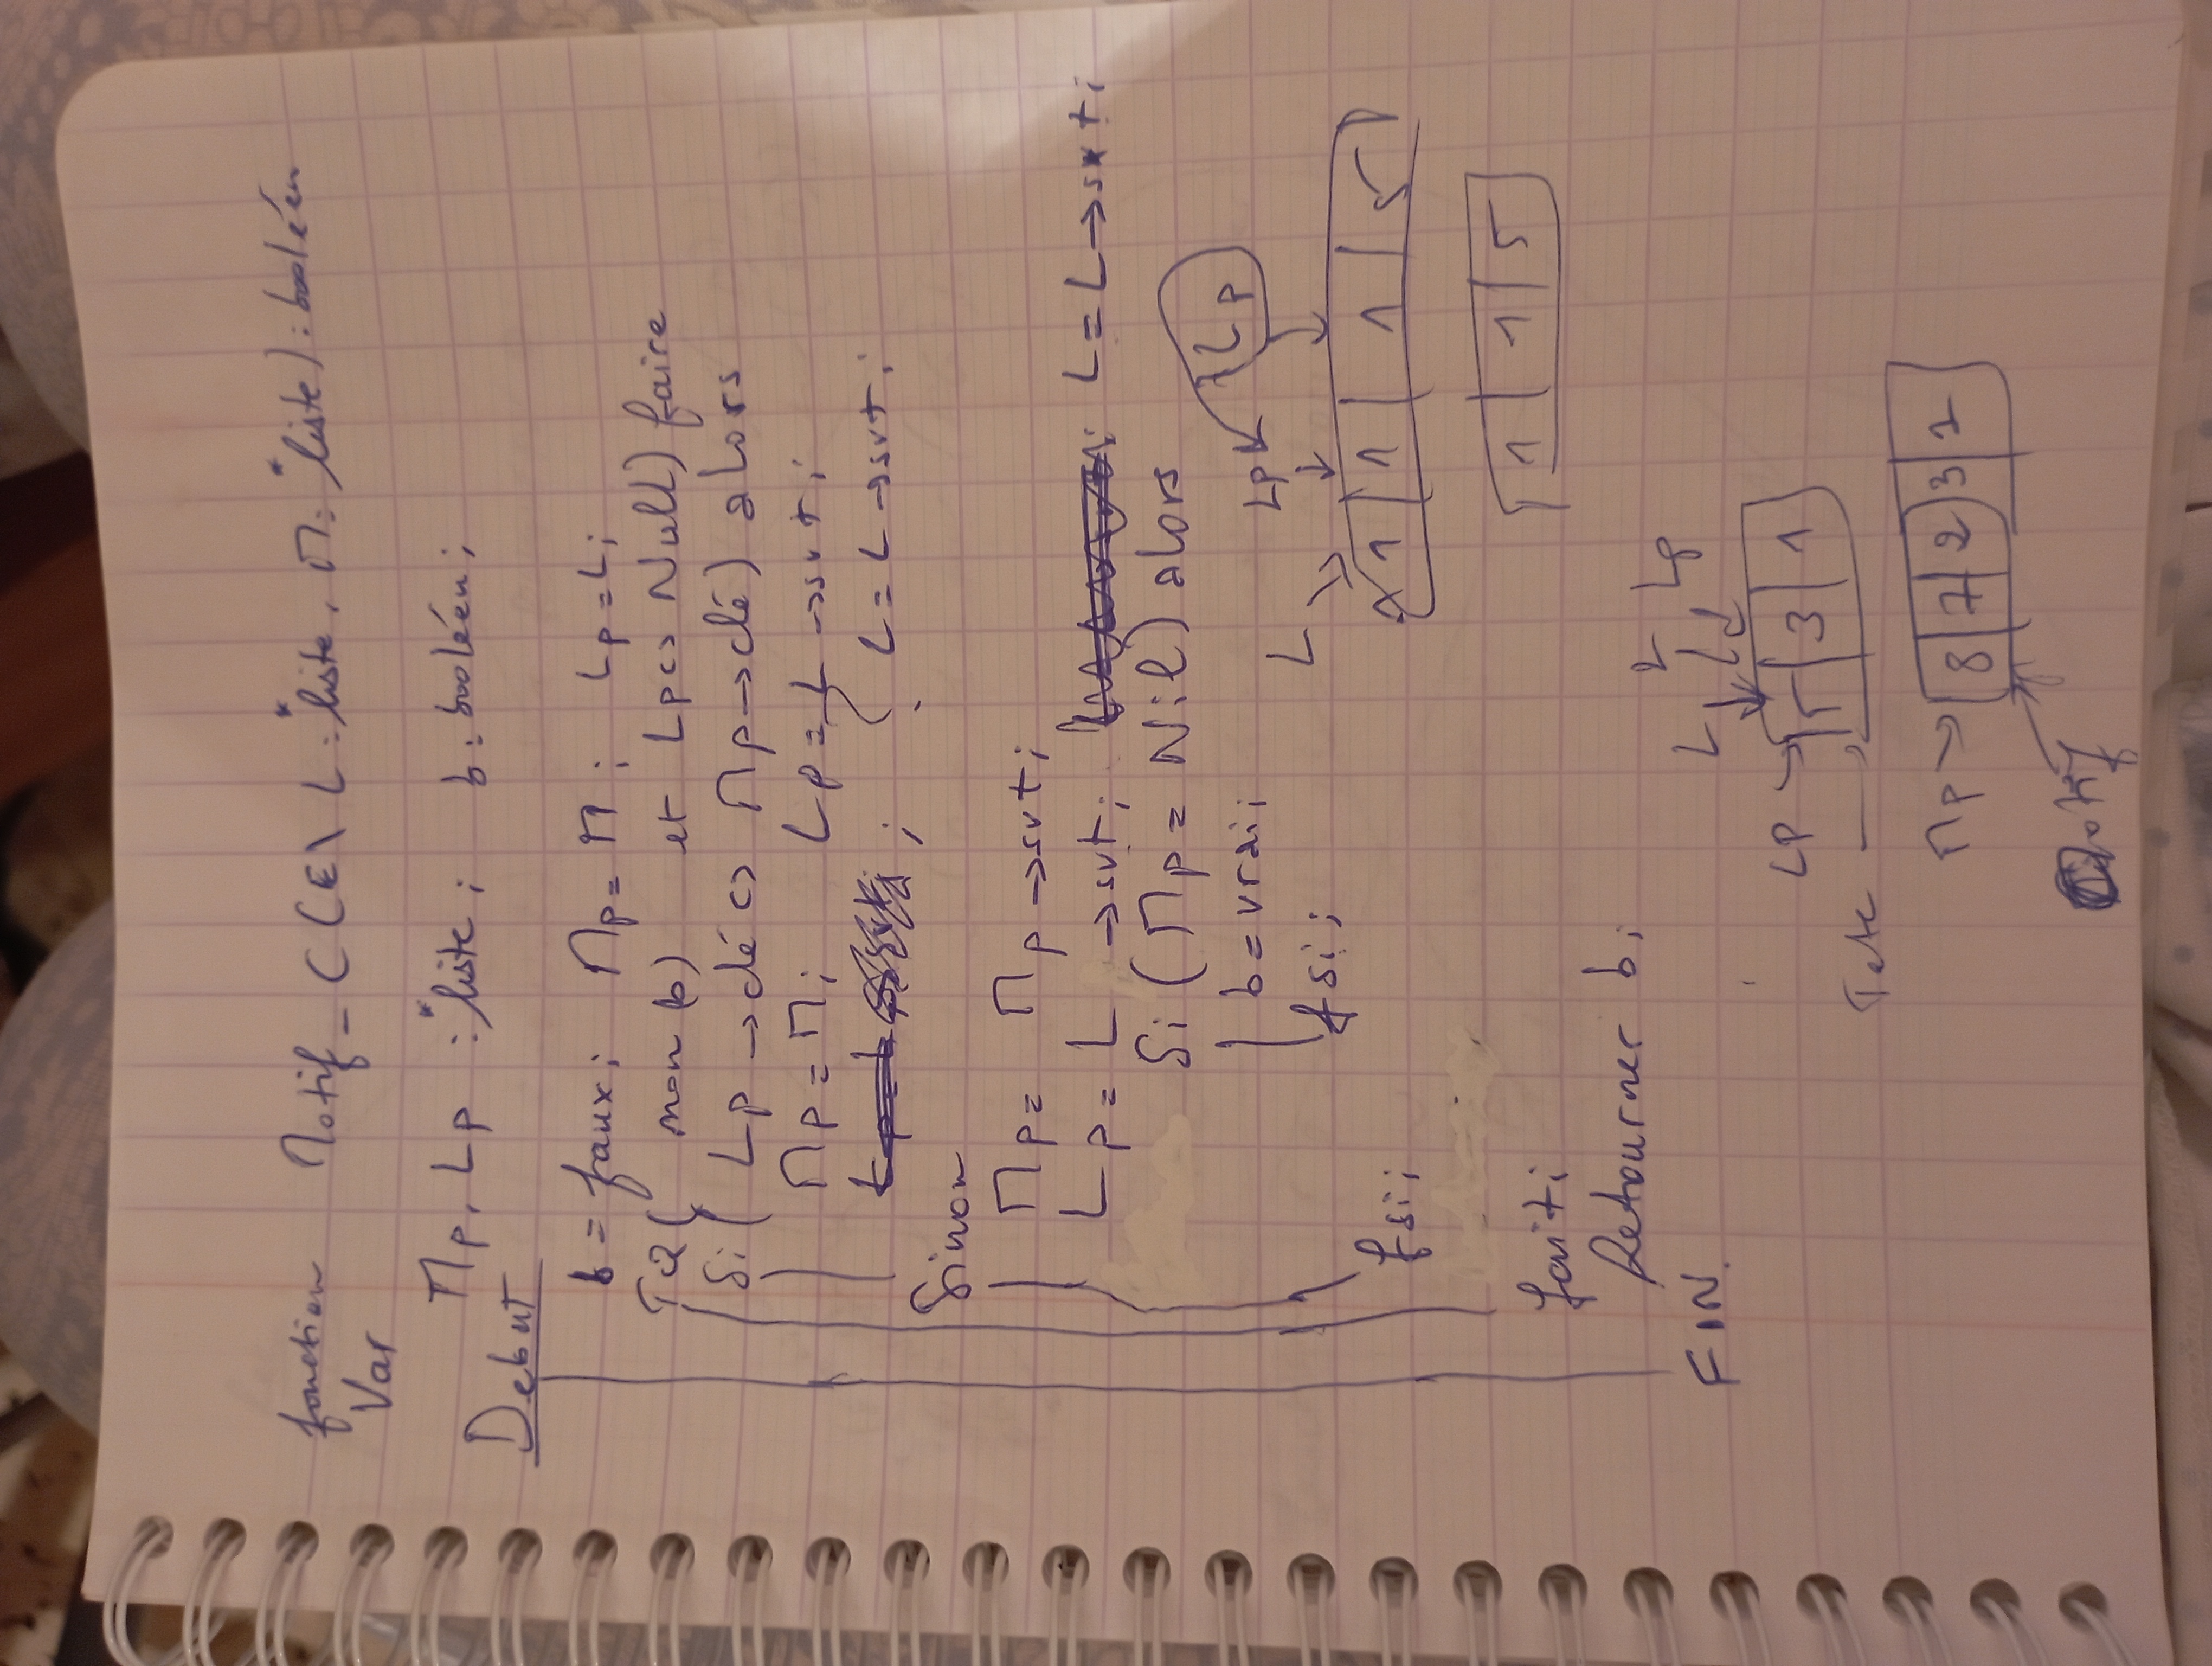 fonction Motif_C (E\ L : *liste, M : *liste) : booléen
Var
Mp, Lp : *liste ; b : booléen ;
Debut
b = faux ; Mp = M ; Lp = L ;
TQ ( non (b) et Lp <> Null ) faire
Si ( Lp → clé <> Mp → clé ) alors
Mp = M ; Lp = L → svt ;
; L = L → svt ;
Sinon
Mp = Mp → svt ;
Lp = L → svt ; L = L → svt ;
Si ( Mp = Nil ) alors
b = vrai ;
fsi ;
fsi ;
fait ;
Retourner b ;
FIN.
Lp
Lp
L
1 1 1 5
1 1 5
L L Lp
Lp
5 3 1
Tete
Mp 8 7 2 3 1
Motif